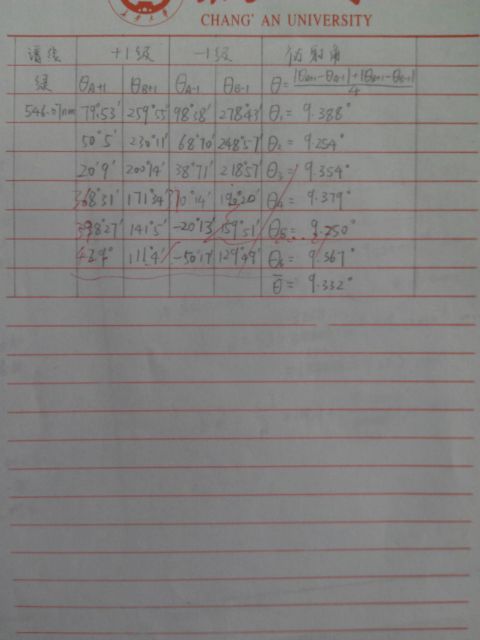 CHANG' AN UNIVERSITY
谱线 +1级 -1级 衍射角
绿 θA+1 θB+1 θA-1 θB-1 θ= |θA+1-θA-1|+|θB+1-θB-1| / 4
546.07nm 79°53' 259°55' 98°38' 278°43' θ₁= 9.388°
50°5' 230°11' 68°70' 248°57' θ₂= 9.254°
20°9' 200°14' 38°71' 218°57' θ₃= 9.354°
171°34' 10°14' 190°20' θ₄= 9.379°
141°5' -20°13' 159°51' θ₅= 9.250°
111°4' -50°17' 129°49' θ₆= 9.367°
θ̄= 9.332°